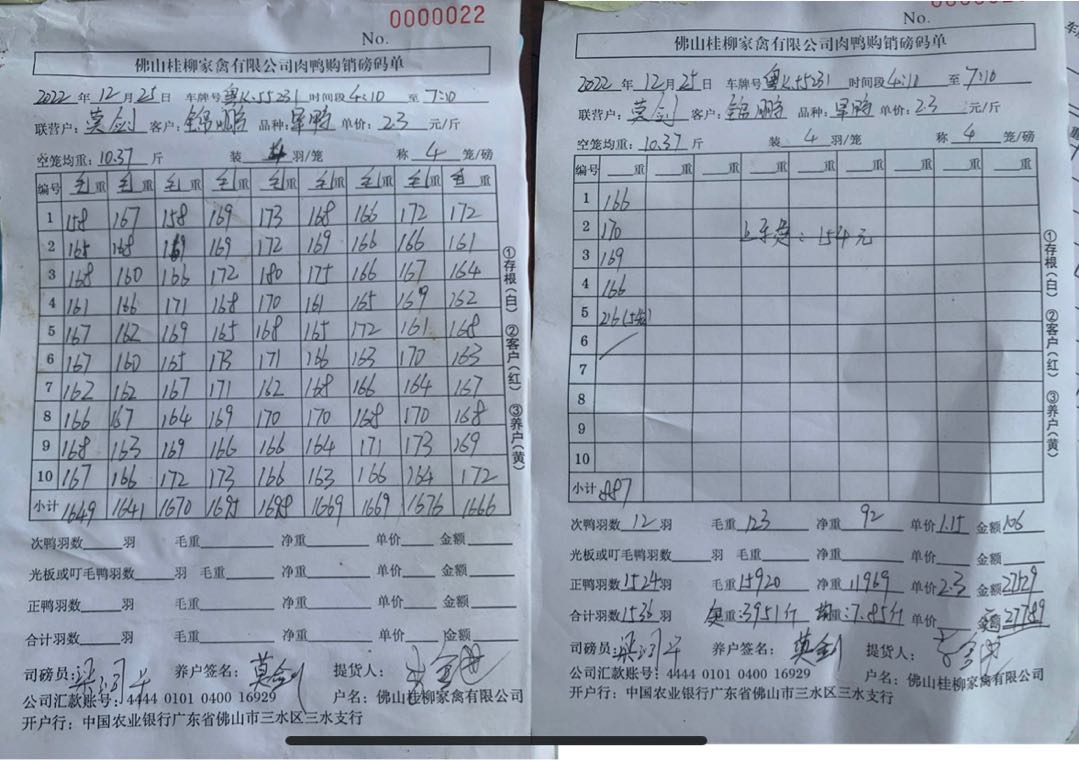 0000022
No.
佛山桂柳家禽有限公司肉鸭购销磅码单
2022 年 12 月 25 日 车牌号 粤K·55231 时间段 4:10 至 7:10
联营户: 莫剑 客户: 锦鹏 品种: 单价: 2.3 元/斤
空笼均重: 10.37 斤 装 4 羽/笼 称 4 笼/磅
编号 毛重 毛重 毛重 毛重 毛重 毛重 毛重 毛重 毛重
1 158 167 158 169 173 168 166 172 172
2 165 168 169 169 172 169 166 166 161
3 168 160 166 172 180 175 166 167 164
4 161 166 171 168 170 161 165 169 162
5 167 162 169 165 168 165 172 161 168
6 167 160 165 173 171 166 163 170 163
7 162 162 167 171 162 168 166 164 167
8 166 167 164 169 170 170 168 170 168
9 168 163 169 166 166 164 171 173 169
10 167 166 172 173 166 163 166 164 172
小计 1649 1641 1670 1695 1698 1669 1669 1676 1666
次鸭羽数 羽 毛重 净重 单价 金额
光板或叮毛鸭羽数 羽 毛重 净重 单价 金额
正鸭羽数 羽 毛重 净重 单价 金额
合计羽数 羽 毛重 净重 单价 金额
司磅员: 养户签名: 莫剑 提货人:
公司汇款账号: 4444 0101 0400 16929 户名: 佛山桂柳家禽有限公司
开户行: 中国农业银行广东省佛山市三水区三水支行
①存根(白) ②客户(红) ③养户(黄)
No.
佛山桂柳家禽有限公司肉鸭购销磅码单
2022 年 12 月 25 日 车牌号 粤K·55231 时间段 4:10 至 7:10
联营户: 莫剑 客户: 锦鹏 品种: 单价: 2.3 元/斤
空笼均重: 10.37 斤 装 4 羽/笼 称 4 笼/磅
编号 重 重 重 重 重 重 重 重 重
1 166
2 170 上车费: 154元
3 169
4 166
5 216
6
7
8
9
10
小计 887
次鸭羽数 12 羽 毛重 123 净重 92 单价 1.15 金额 106
光板或叮毛鸭羽数 羽 毛重 净重 单价 金额
正鸭羽数 1524 羽 毛重 15920 净重 11969 单价 2.3 金额 27529
合计羽数 1536 羽 重: 3951斤 重: 7.85斤 单价 金额 27789
司磅员: 养户签名: 莫剑 提货人:
公司汇款账号: 4444 0101 0400 16929 户名: 佛山桂柳家禽有限公司
开户行: 中国农业银行广东省佛山市三水区三水支行
①存根(白) ②客户(红) ③养户(黄)